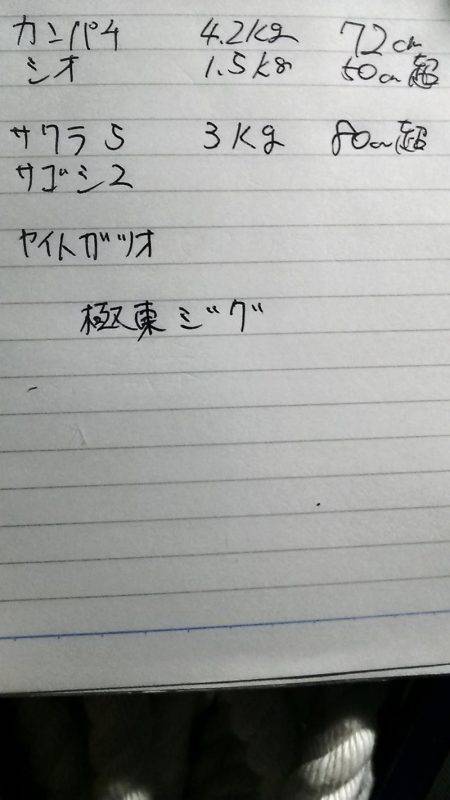 カンパチ 4.2kg 72cm
シオ 1.5kg 50cm超
サワラ5 3kg 80cm超
サゴシ2
ヤイトガツオ
極東ジグ